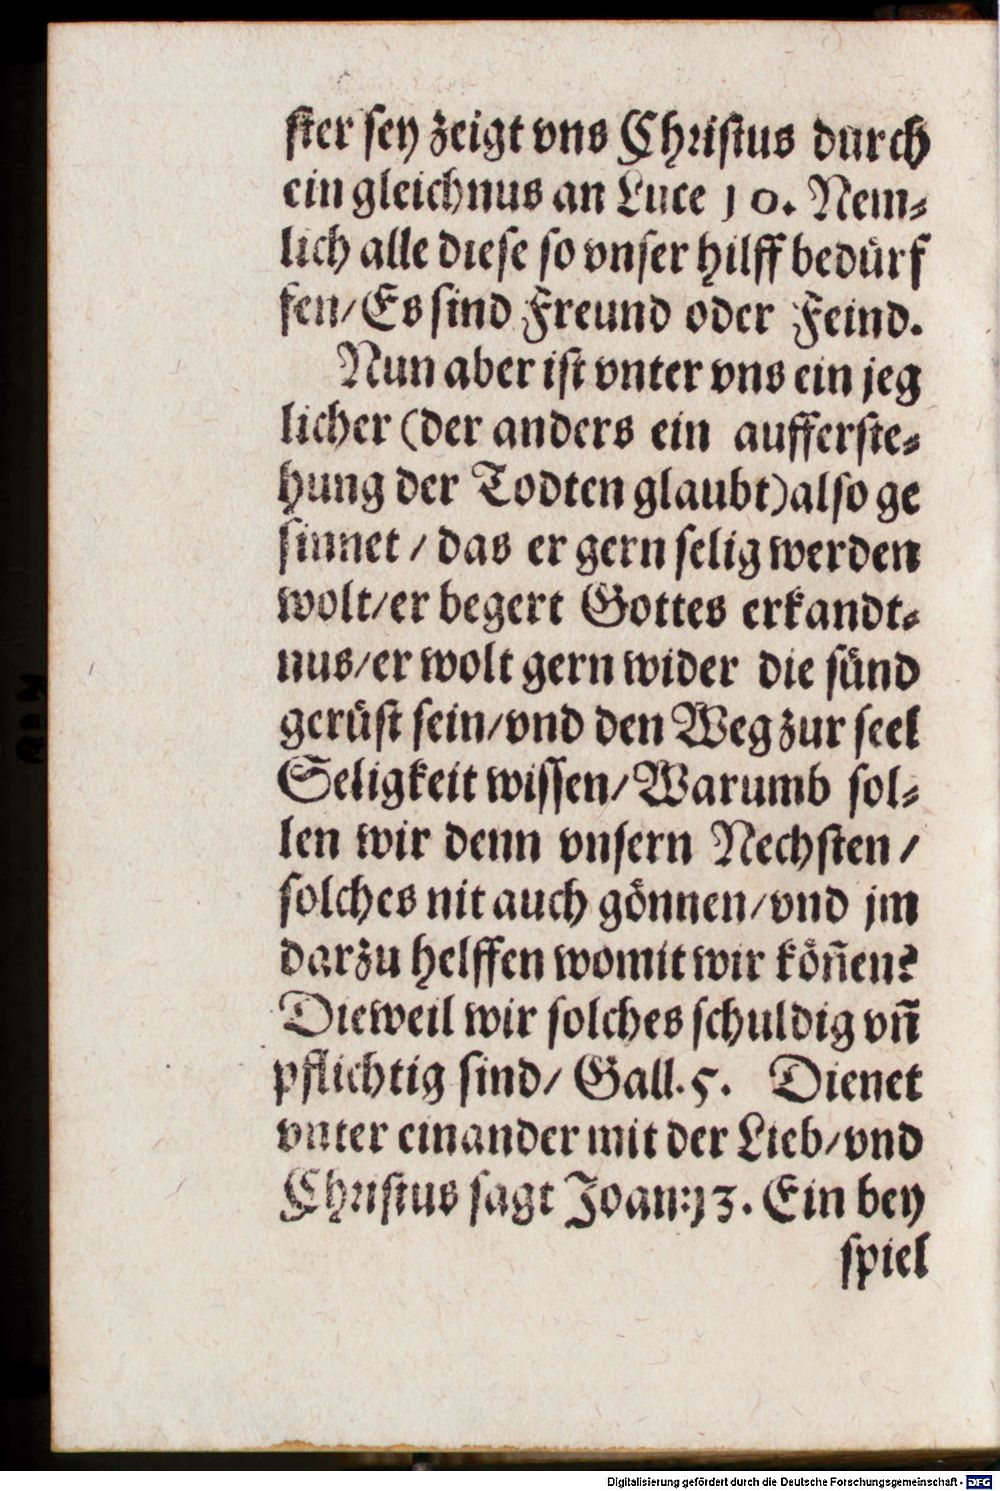 ſter ſey zeigt vns Chriſtus durch
ein gleichnus an Luce 10. Nem⸗
lich alle dieſe ſo vnſer hilff bedürf
fen/Es ſind Freund oder Feind.
Nun aber iſt vnter vns ein jeg
licher (der anders ein aufferſte⸗
hung der Todten glaubt)alſo ge
ſinnet / das er gern ſelig werden
wolt/er begert Gottes erkandt⸗
nus/er wolt gern wider die ſünd
gerüſt ſein/vnd den Weg zur ſeel
Seligkeit wiſſen/Warumb ſol⸗
len wir denn vnſern Nechſten /
ſolches nit auch gönnen/vnd jm
darzu helffen womit wir köñen?
Dieweil wir ſolches ſchuldig vñ
pflichtig ſind/ Gall.5. Dienet
vnter einander mit der Lieb/vnd
Chriſtus ſagt Joan:13. Ein bey
ſpiel
Digitalisierung gefördert durch die Deutsche Forschungsgemeinschaft - DFG